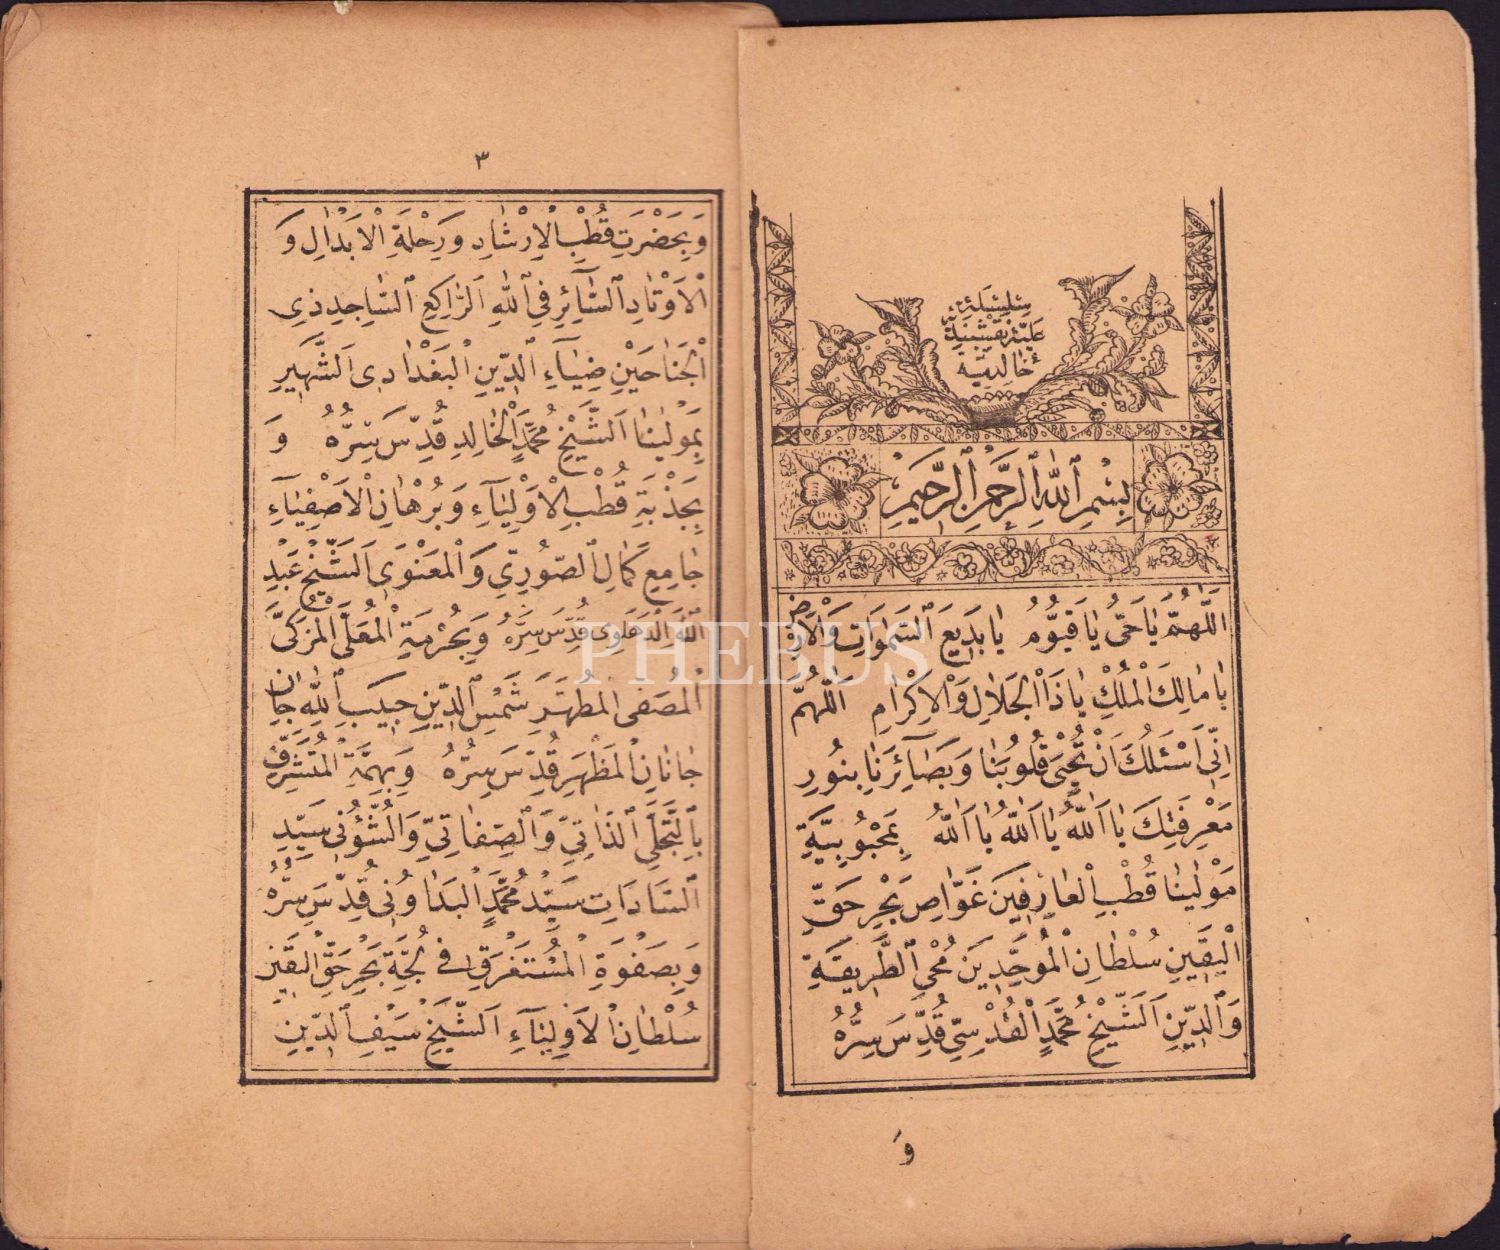 سِلْسِلَهٔ
عَلِيَّهٔ نَقْشِبَنْدِيَّهٔ
خَالِدِيَّه
بِسْمِ ٱللّٰهِ ٱلرَّحْمٰنِ ٱلرَّحِيمِ
اَللّٰهُمَّ يَا حَىُّ يَا قَيُّومُ يَا بَدِيعَ ٱلسَّمٰوَاتِ وَٱلْاَرْضِ
يَا مَالِكَ ٱلْمُلْكِ يَا ذَا ٱلْجَلَالِ وَٱلْاِكْرَامِ اَللّٰهُمَّ
اِنِّى اَسْئَلُكَ اَنْ تُحْيِىَ قُلُوبَنَا وَبَصَآئِرَنَا بِنُورِ
مَعْرِفَتِكَ يَا اَللّٰهُ يَا اَللّٰهُ يَا اَللّٰهُ بِمَحْبُوبِيَّةِ
مَوْلٰينَا قُطْبِ ٱلْعَارِفِينَ غَوَّاصِ بَحْرِ حَقِّ
ٱلْيَقِينِ سُلْطَانِ ٱلْمُوَحِّدِينَ مُحْىِ ٱلطَّرِيقَةِ
وَٱلدِّينِ اَلشَّيْخِ مُحَمَّدٍ ٱلْقُدْسِىِّ قُدِّسَ سِرُّهُ
وَ
٣
وَبِحَضْرَتِ قُطْبِ ٱلْاِرْشَادِ وَرِحْلَةِ ٱلْاَبْدَالِ وَ
ٱلْاَوْتَادِ ٱلسَّآئِرِ فِي ٱللّٰهِ اَلرَّاكِعِ ٱلسَّاجِدِ ذِى
ٱلْجَنَاحَيْنِ ضِيَآءِ ٱلدِّينِ ٱلْبَغْدَادِى اَلشَّهِيرِ
بِمَوْلٰينَا اَلشَّيْخِ مُحَمَّدٍ ٱلْخَالِدِ قُدِّسَ سِرُّهُ وَ
بِجَذْبَةِ قُطْبِ ٱلْاَوْلِيَآءِ وَبُرْهَانِ ٱلْاَصْفِيَآءِ
جَامِعِ كَمَالِ ٱلصُّورِيِّ وَٱلْمَعْنَوِى اَلشَّيْخِ عَبْدِ
ٱللّٰهِ ٱلدِّهْلَوِى قُدِّسَ سِرُّهُ وَبِحُرْمَةِ ٱلْمُعَلَّى ٱلْمُزَكَّى
ٱلْمُصَفَّى ٱلْمُطَهَّرِ شَمْسِ ٱلدِّينِ حَبِيبِ ٱللّٰهِ جَانِ
جَانَانِ ٱلْمَظْهَرِ قُدِّسَ سِرُّهُ وَبِهِمَّةِ ٱلْمُتَشَرِّفِ
بِٱلتَّجَلِّي ٱلذَّاتِيِّ وَٱلصِّفَاتِيِّ وَٱلشُّؤُنِي سَيِّدِ
ٱلسَّادَاتِ سَيِّدْ مُحَمَّدٍ ٱلْبَدَاوُنِى قُدِّسَ سِرُّهُ
وَبِصَفْوَةِ ٱلْمُسْتَغْرَقِ فِى لُجَّةِ بَحْرِ حَقِّ ٱلْيَقِينِ
سُلْطَانِ ٱلْاَوْلِيَآءِ اَلشَّيْخِ سَيْفِ ٱلدِّينِ
PHEBUS